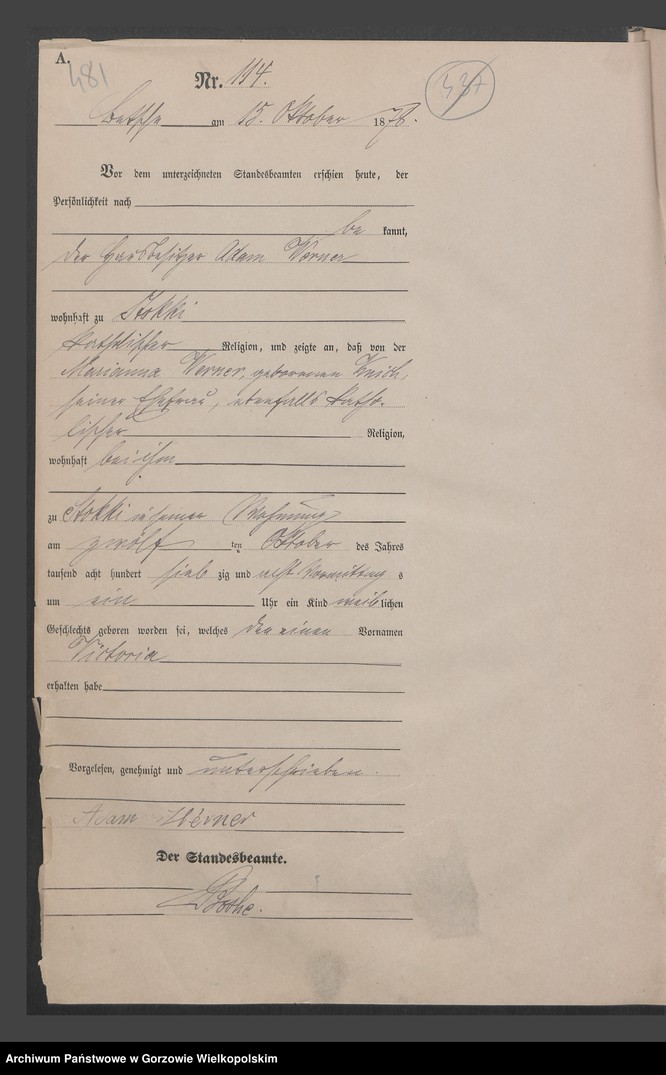 A.
481
Nr. 114.
437
Betsche am 15. Oktober 1878.
Vor dem unterzeichneten Standesbeamten erschien heute, der
Persönlichkeit nach
be kannt,
der Hausbesitzer Adam Werner
wohnhaft zu Stokki
katholischer Religion, und zeigte an, daß von der
Marianna Werner, geborenen
seiner Ehefrau, ebenfalls katho-
lischer Religion,
wohnhaft bei ihm
zu Stokki in seiner Wohnung
am zwölf ten Oktober des Jahres
tausend acht hundert sieb zig und acht Vormittag s
um ein Uhr ein Kind weib lichen
Geschlechts geboren worden sei, welches den einen Vornamen
Victoria
erhalten habe
Vorgelesen, genehmigt und unterschrieben.
Adam Werner
Der Standesbeamte.
Archiwum Państwowe w Gorzowie Wielkopolskim